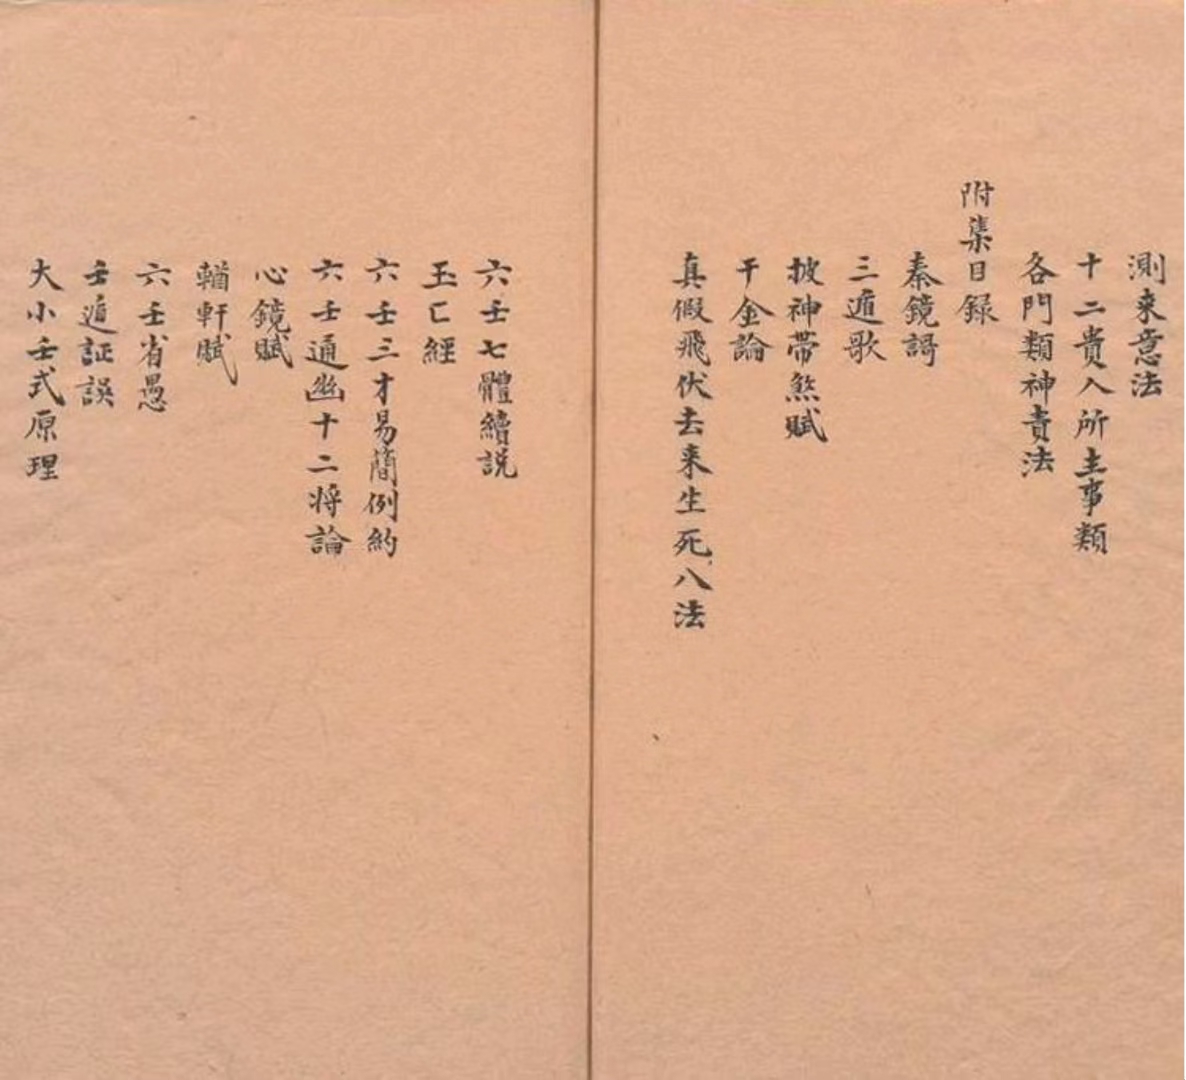 測来意法
十二貴人所主事類
各門類神責法
附集目録
秦鏡謌
三遁歌
披神帶煞賦
千金論
真假飛伏去来生死八法
六壬七體續説
玉匚經
六壬三才易簡例約
六壬通幽十二将論
心鏡賦
輶軒賦
六壬省愚
壬遁証誤
大小壬式原理